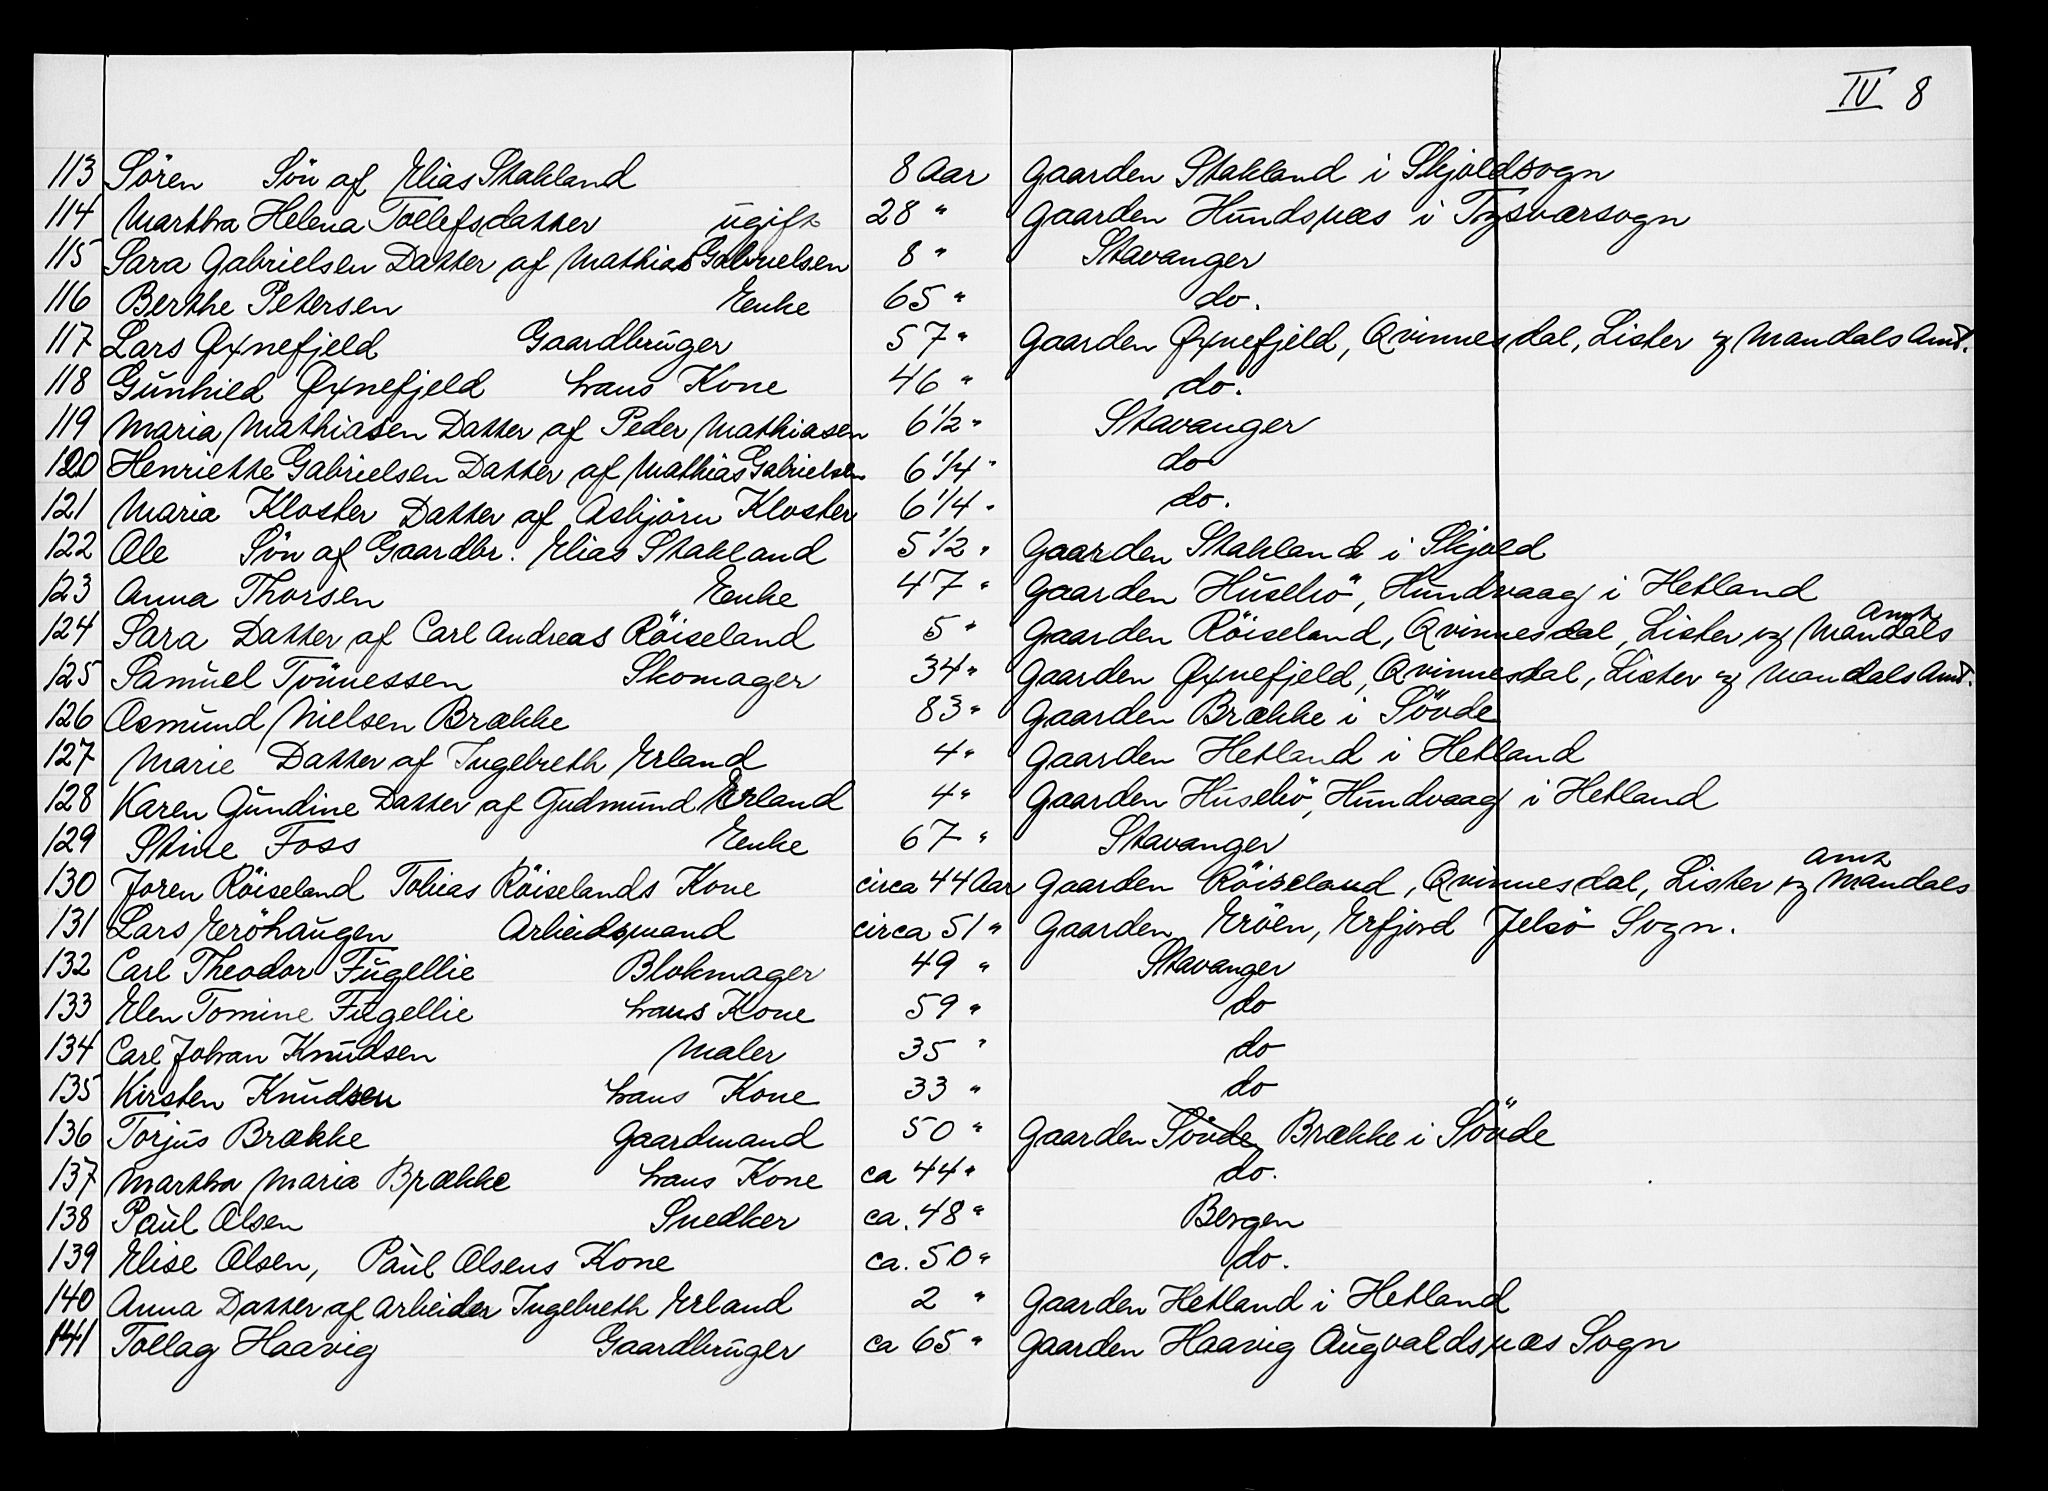 IV 8
113 Sören Sön af Elias Stakland 8 Aar Gaarden Stakland i Skjoldsogn
114 Martha Helena Tollefsdatter ugift 28 " Gaarden Hundsnæs i Tysværsogn
115 Sara Gabrielsen Datter af Mathias Gabrielsen 8 " Stavanger
116 Berthe Petersen Enke 65 " do.
117 Lars Øxnefjeld Gaardbruger 57 " Gaarden Øxnefjeld, Qvinnesdal, Lister og Mandals Amt.
118 Gunhild Øxnefjeld hans Kone 46 " do.
119 Maria Mathiasen Datter af Peder Mathiasen 6 1/2 " Stavanger
120 Henriette Gabrielsen Datter af Mathias Gabrielsen 6 1/4 " do
121 Maria Kloster Datter af Asbjörn Kloster 6 1/4 " do.
122 Ole Sön af Gaardbr. Elias Stakland 5 1/2 " Gaarden Stakland i Skjold
123 Anna Thorsen Enke 47 " Gaarden Husebö, Hundvaag i Hetland
124 Sara Datter af Carl Andreas Röiseland 5 " Gaarden Röiseland, Qvinnesdal, Lister og Mandals Amt
125 Samuel Tönnessen Skomager 34 " Gaarden Øxnefjeld, Qvinnesdal, Lister og Mandals Amt.
126 Osmund Nielsen Brække 83 " Gaarden Brække i Sövde
127 Marie Datter af Ingebreth Erland 4 " Gaarden Hetland i Hetland
128 Karen Gundine Datter af Gudmund Erland 4 " Gaarden Husebö, Hundvaag i Hetland
129 Stine Foss Enke 67 " Stavanger
130 Joren Röiseland Tobias Röiselands Kone circa 44 Aar Gaarden Röiseland, Qvinnesdal, Lister og Mandals Amt
131 Lars Eröhaugen Arbeidsmand circa 51 " Gaarden Eröen, Erfjord Jelsö Sogn.
132 Carl Theodor Fugellie Blokmager 49 " Stavanger
133 Elen Tomine Fugellie hans Kone 59 " do
134 Carl Johan Knudsen Maler 35 " do
135 Kirsten Knudsen hans Kone 33 " do
136 Torjus Brække Gaardmand 50 " Gaarden Sövde Brække i Sövde
137 Martha Maria Brække hans Kone ca 44 " do.
138 Paul Olsen Snedker ca. 48 " Bergen
139 Elise Olsen, Paul Olsens Kone ca. 50 " do.
140 Anna Datter af Arbeider Ingebreth Erland 2 " Gaarden Hetland i Hetland
141 Tollag Haavig Gaardbruger ca 65 " Gaarden Haavig Augvaldsnæs Sogn